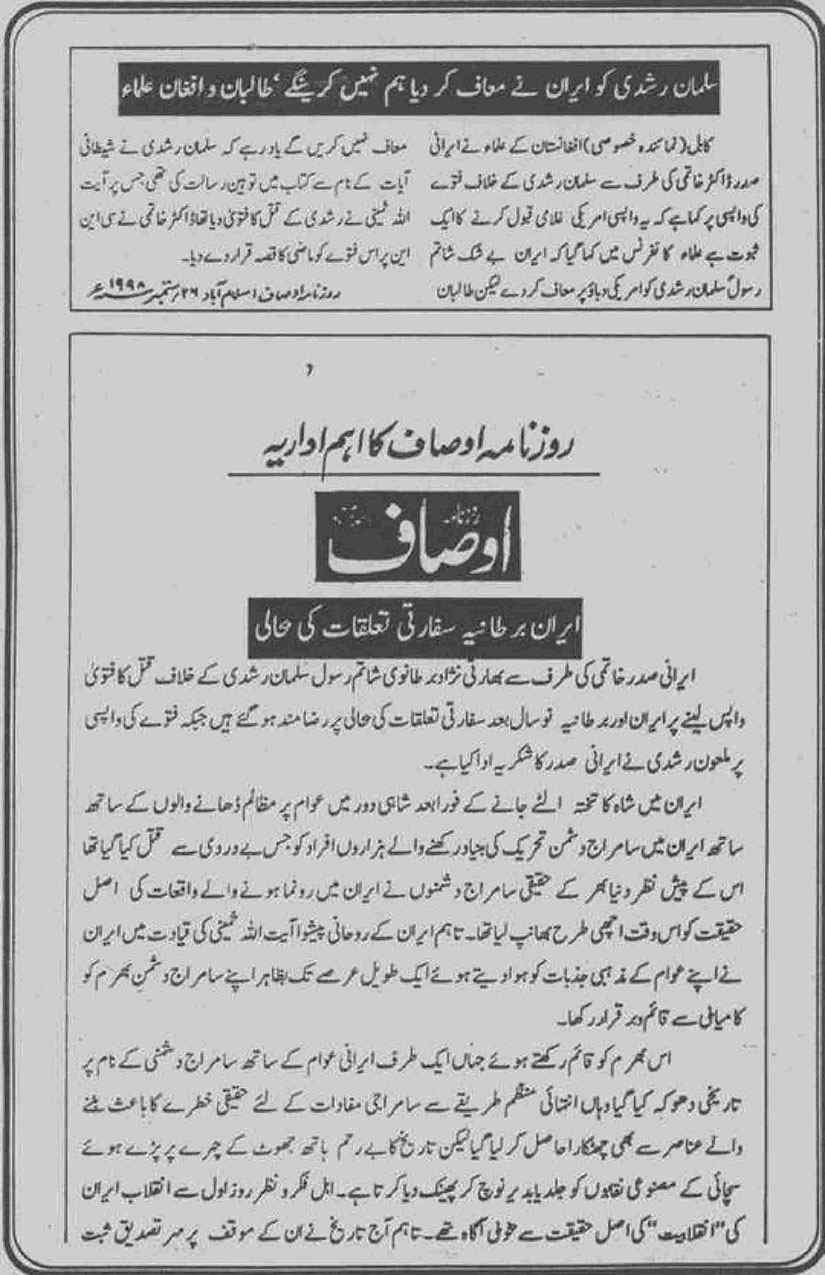 سلمان رشدی کو ایران نے معاف کر دیا ہم نہیں کرینگے‘ طالبان و افغان علماء
کابل (نمائندہ خصوصی) افغانستان کے علماء نے ایرانی
صدر ڈاکٹر خاتمی کی طرف سے سلمان رشدی کے خلاف فتوے
کی واپسی پر کہا ہے کہ یہ واپسی امریکی غلامی قبول کرنے کا ایک
ثبوت ہے علماء کانفرنس میں کہا گیا کہ ایران بے شک شاتم
رسولؐ سلمان رشدی کو امریکی دباؤ پر معاف کر دے لیکن طالبان
معاف نہیں کریں گے یاد رہے کہ سلمان رشدی نے شیطانی
آیات کے نام سے کتاب میں توہین رسالت کی تھی جس پر آیت
اللہ خمینی نے رشدی کے قتل کا فتویٰ دیا تھا ڈاکٹر خاتمی نے سی این
این پر اس فتوے کو ماضی کا قصہ قرار دے دیا۔
روزنامہ اوصاف اسلام آباد ۲۶ ستمبر ۱۹۹۸ء
روزنامہ اوصاف کا اہم اداریہ
روزنامہ
اوصاف
ایران برطانیہ سفارتی تعلقات کی بحالی
ایرانی صدر خاتمی کی طرف سے بھارتی نژاد برطانوی شاتم رسول سلمان رشدی کے خلاف قتل کا فتویٰ
واپس لینے پر ایران اور برطانیہ نو سال بعد سفارتی تعلقات کی بحالی پر رضامند ہو گئے ہیں جبکہ فتوے کی واپسی
پر ملعون رشدی نے ایرانی صدر کا شکریہ ادا کیا ہے۔
ایران میں شاہ کا تختہ الٹے جانے کے فوراً بعد شاہی دور میں عوام پر مظالم ڈھانے والوں کے ساتھ
ساتھ ایران میں سامراج دشمن تحریک کی بنیاد رکھنے والے ہزاروں افراد کو جس بے دردی سے قتل کیا گیا تھا
اس کے پیش نظر دنیا بھر کے حقیقی سامراج دشمنوں نے ایران میں رونما ہونے والے واقعات کی اصل
حقیقت کو اس وقت اچھی طرح بھانپ لیا تھا۔ تاہم ایران کے روحانی پیشوا آیت اللہ خمینی کی قیادت میں ایران
نے اپنے عوام کے مذہبی جذبات کو ہوا دیتے ہوئے ایک طویل عرصے تک بظاہر اپنے سامراج دشمن بھرم کو
کامیابی سے قائم و برقرار رکھا۔
اس بھرم کو قائم رکھتے ہوئے جہاں ایک طرف ایرانی عوام کے ساتھ سامراج دشمنی کے نام پر
تاریخی دھوکہ کیا گیا وہاں انتہائی منظم طریقے سے سامراجی مفادات کے لئے حقیقی خطرے کا باعث بننے
والے عناصر سے بھی چھٹکارا حاصل کر لیا گیا لیکن تاریخ کا بے رحم ہاتھ جھوٹ کے چہرے پر پڑے ہوئے
سچائی کے مصنوعی نقابوں کو جلد یا بدیر نوچ کر پھینک دیا کرتا ہے۔ اہل فکر و نظر روز اول سے انقلاب ایران
کی "انقلابیت" کی اصل حقیقت سے بخوبی آگاہ تھے۔ تاہم آج تاریخ نے ان کے موقف پر مہر تصدیق ثبت